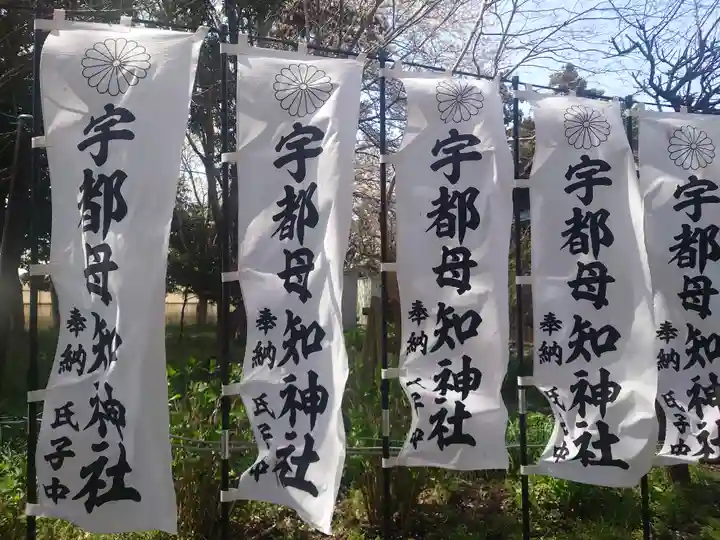 宇都母知神社
奉納
氏子中
宇都母知神社
奉納
氏子中
宇都母知神社
奉納
氏子中
宇都母知神社
奉納
氏子中
宇都母知神社
奉納
氏子中